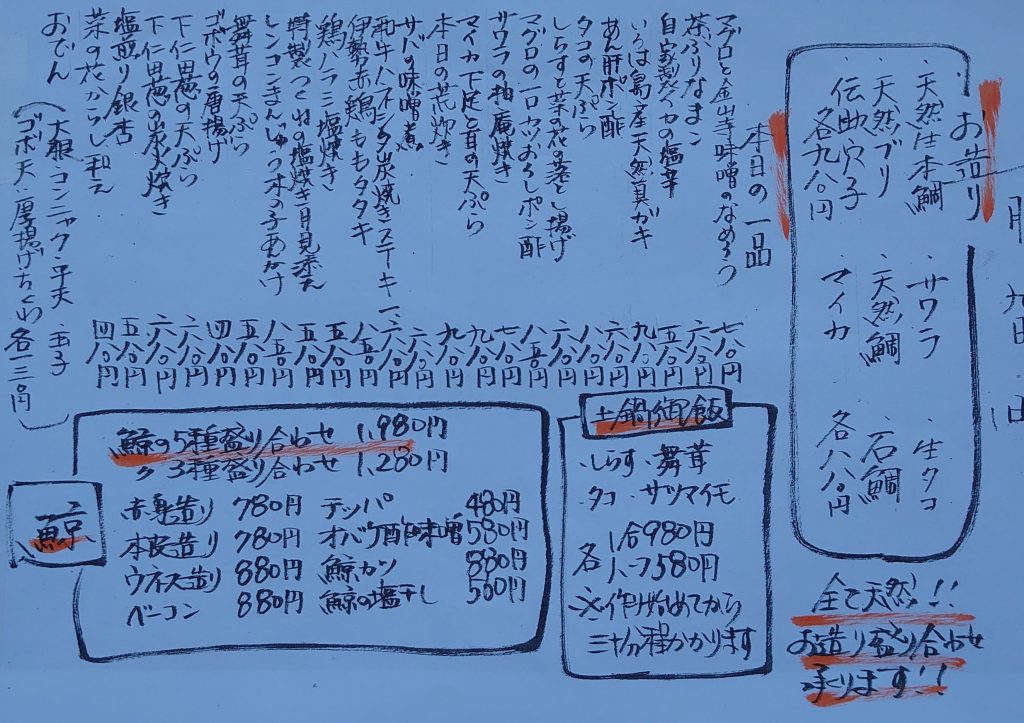 お造り
・天然生本鯛
・天然ブリ
・伝助穴子
各九八〇円
・サワラ
・天然鯛
マイカ
・生タコ
・石鯛
各八八〇円
全て天然!!
お造り盛り合わせ
承ります!!
本日の一品
マグロと金山寺味噌のなめろう 七八〇円
茶ぶりなまこ 六八〇円
自家製イカの塩辛 五八〇円
いろは島産天然真ガキ 九八〇円
あん肝ポン酢 六八〇円
タコの天ぷら 八八〇円
しらすと菜の花の落とし揚げ 六八〇円
マグロの一口カツおろしポン酢 八五〇円
サワラの柚庵焼き 七八〇円
マイカ下足と耳の天ぷら 九八〇円
本日の荒炊き 九八〇円
サバの味噌煮 六八〇円
和牛ハネシタ炭焼きステーキ 一、六八〇円
伊勢赤鶏ももタタキ 八八〇円
鶏ハラミ塩焼き 五八〇円
特製つくねの塩焼き月見添え 五五〇円
レンコンまんじゅう木の子あんかけ 八五〇円
舞茸の天ぷら 五八〇円
ゴボウの唐揚げ 四八〇円
下仁田葱の天ぷら 六八〇円
下仁田葱の炭火焼き 六八〇円
塩煎り銀杏 五八〇円
菜の花からし和え 四八〇円
おでん
(大根・コンニャク・平天・玉子
ゴボ天・厚揚げ・ちくわ 各一三〇円)
土鍋御飯
・しらす・舞茸
・タコ・サツマイモ
各 1合980円
ハーフ580円
※作り始めてから
三十分程かかります
鯨
鯨の5種盛り合わせ 1,980円
〃 3種盛り合わせ 1,280円
赤身造り 780円
本皮造り 780円
ウネス造り 880円
ベーコン 880円
テッパ 480円
オバケ酢味噌 580円
鯨カツ 880円
鯨の塩干し 500円